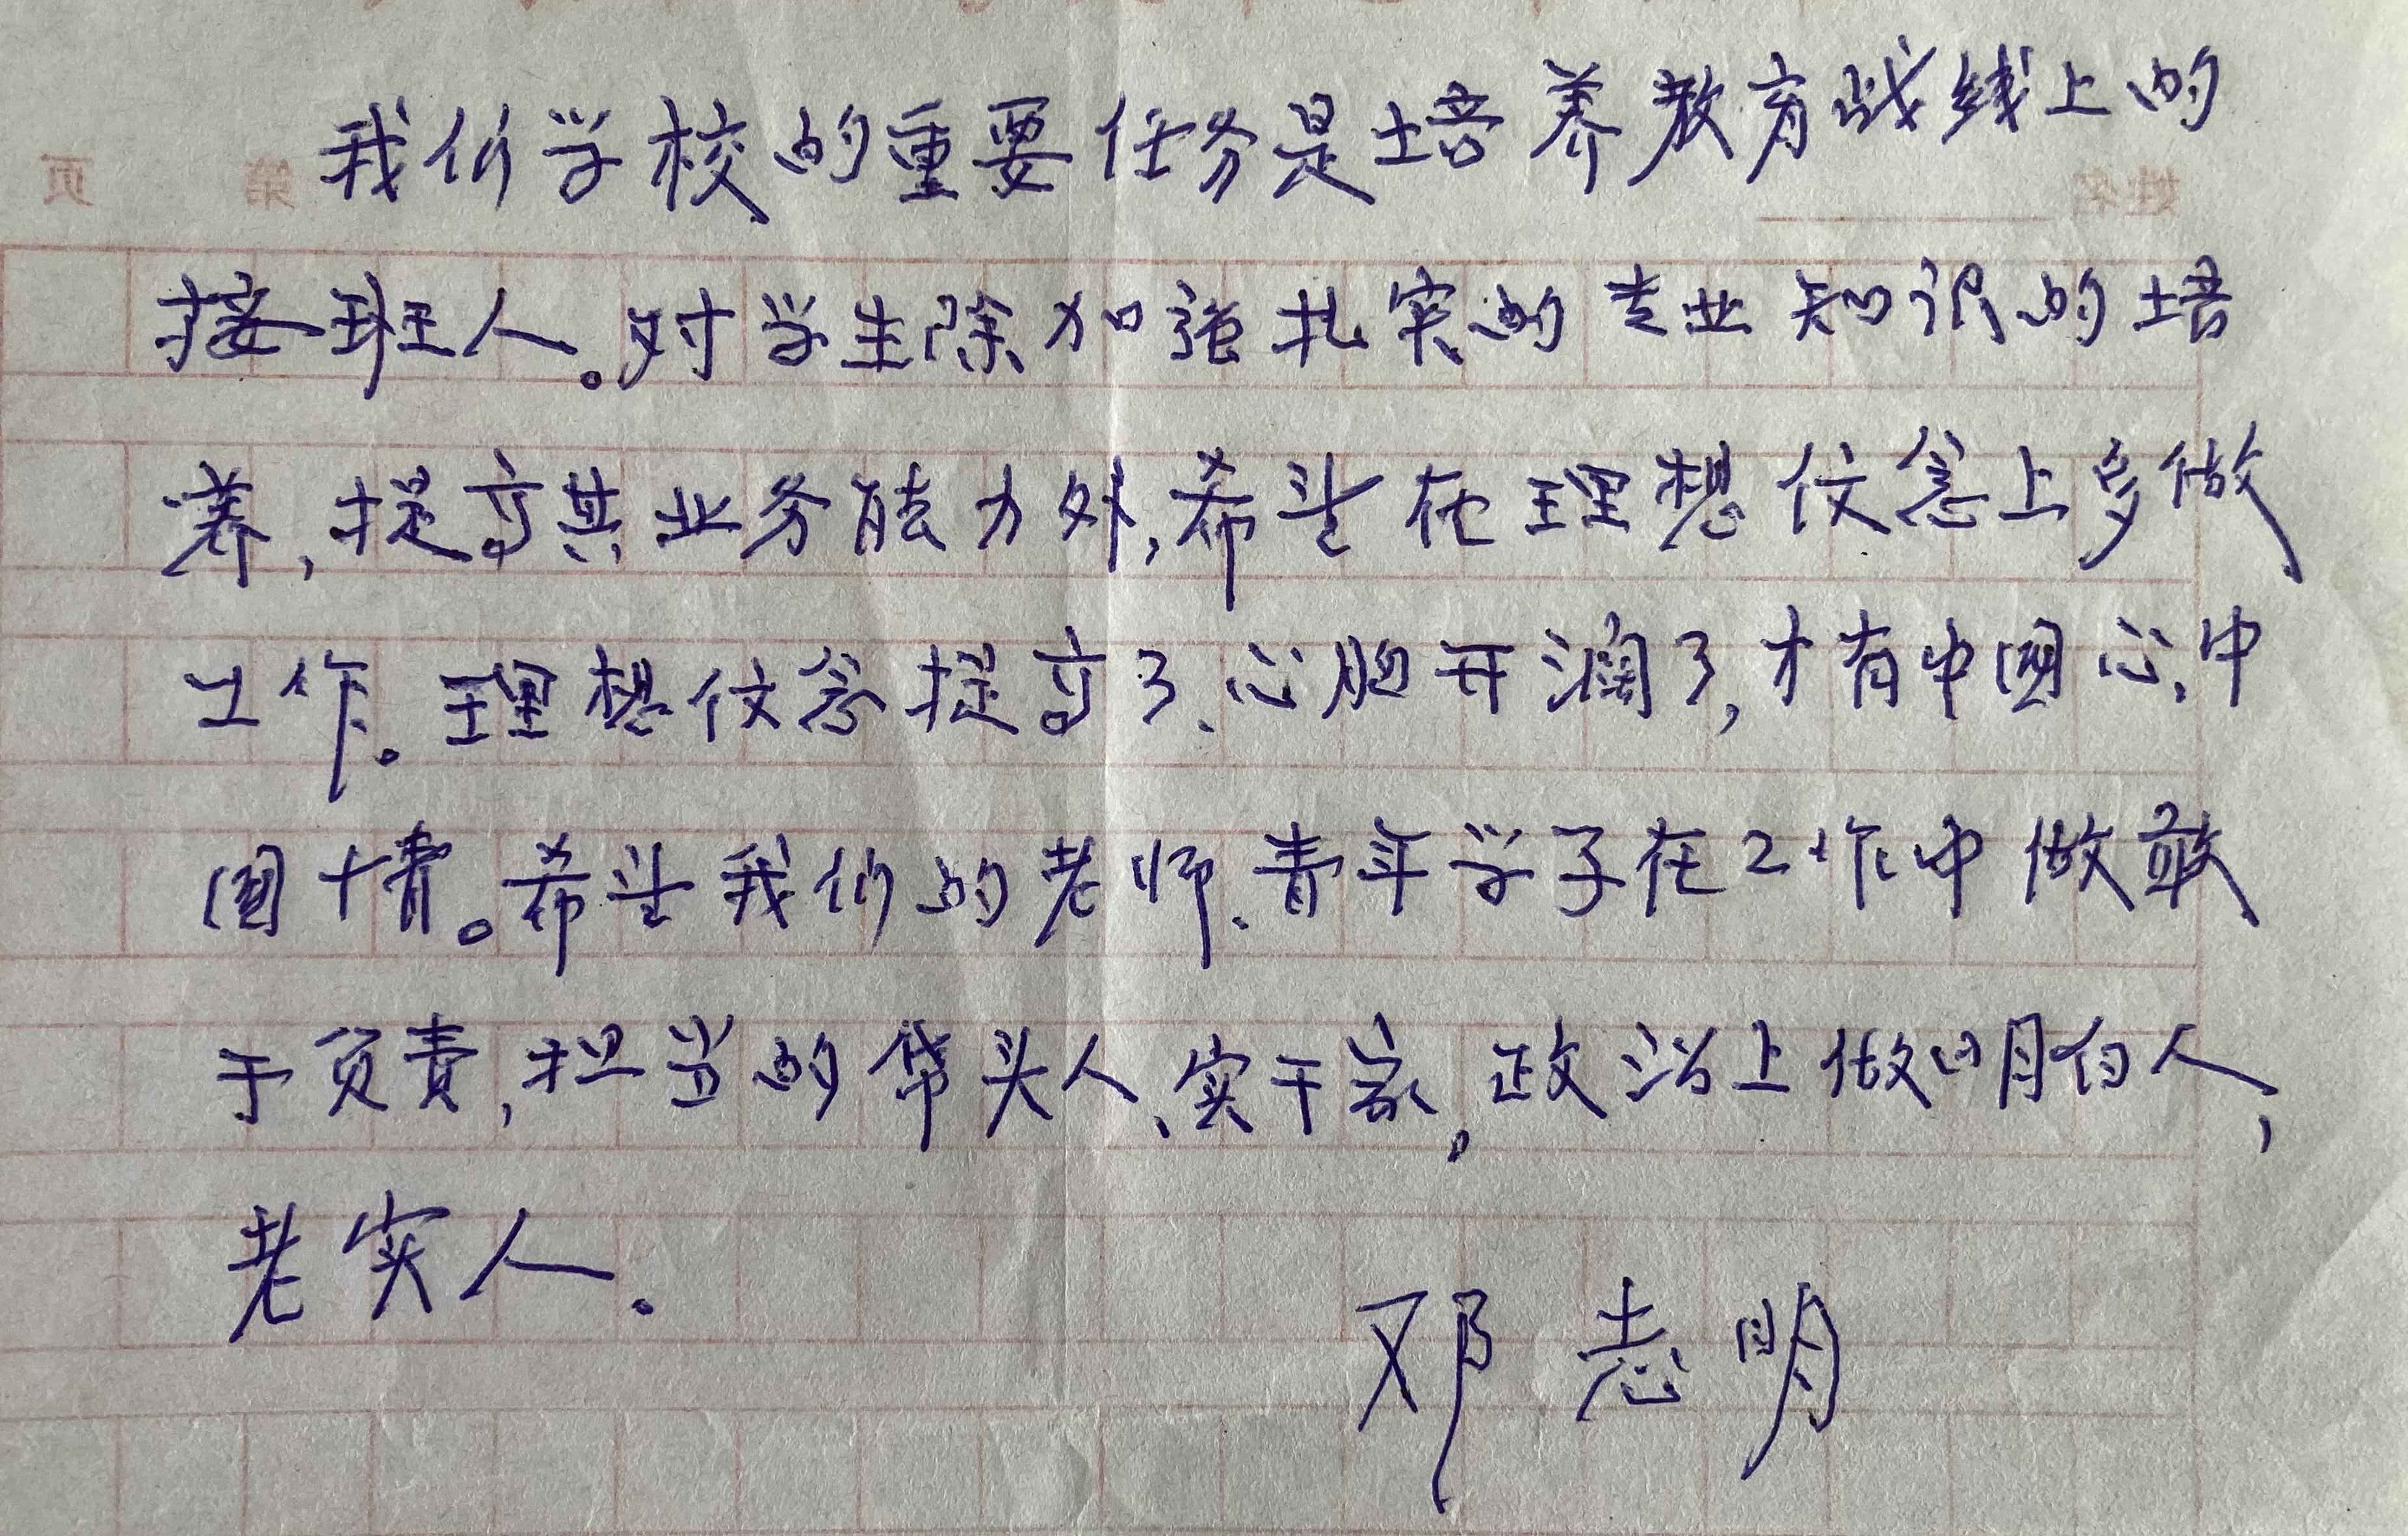 我们学校的重要任务是培养教育战线上的
接班人。对学生除加强扎实的专业知识的培
养，提高其业务能力外，希望在理想信念上多做
工作。理想信念提高了、心胸开阔了，才有中国心、中
国情。希望我们的老师、青年学子在工作中做敢
于负责，担当的带头人、实干家，政治上做明白人，
老实人。
邓志明
页 第 姓名